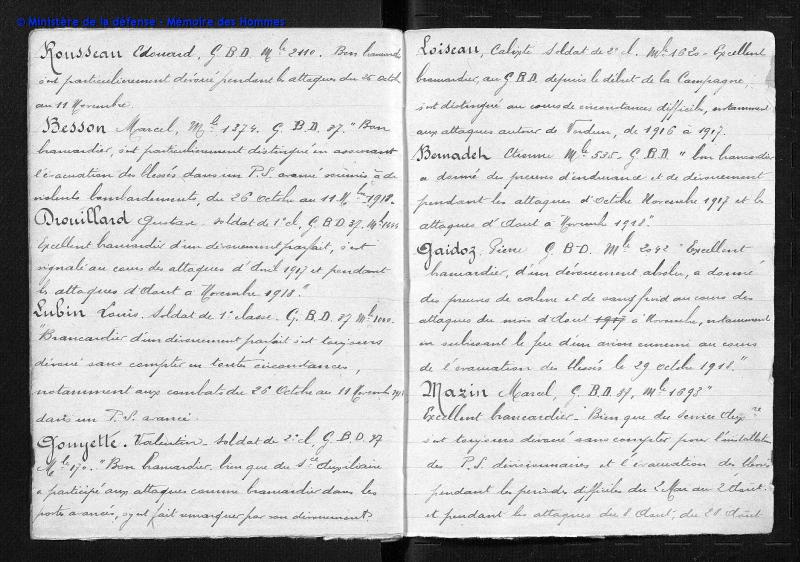 © Ministère de la défense - Mémoire des Hommes
Rousseau Edouard, G.B.D. Mle 2110. Bon brancard
s'est particulièrement dévoué pendant les attaques du 26 Octob
au 11 Novembre.
Besson Marcel, Mle 1374. G.B.D. 37. "Bon
brancardier, s'est particulièrement distingué en assurant
l'évacuation des blessés dans un P.S. avancé soumis à de
violents bombardements, du 26 Octobre au 11 Nbre 1918.
Drouillard Gustave. soldat de 1e cl, G.B.D 37. Mle
Excellent brancardier d'un dévouement parfait, s'est
signalé au cours des attaques d'Avril 1917 et pendant
les attaques d'Aout à Novembre 1918."
Lubin Louis. Soldat de 1e classe. G.B.D. 37 Mle
"Brancardier d'un dévouement parfait s'est toujours
dévoué sans compter en toutes circonstances,
notamment aux combats du 26 Octobre au 11 Novembre
dans un P.S. avancé.
Gouyette. Valentin. soldat de 2e cl, G.B.D. 37
Mle 170. "Bon brancardier, bien que du Sce Auxiliaire
a participé aux attaques comme brancardier dans les
postes avancés, s'y est fait remarquer par son dévouement."
Loiseau, Calixte Soldat de 2e cl. Mle 1620 - Excellent
brancardier, au G.B.D. depuis le début de la Campagne,
s'est distingué au cours de circonstances difficiles, notamment
aux attaques autour de Verdun, de 1916 à 1917.
Bernadeh Etienne Mle 535. G.B.D "bon brancardier
a donné des preuves d'endurance et de dévouement
pendant les attaques d'Octobre Novembre 1917 et les
attaques d'Aout à Novembre 1918."
Gaidoz. Pierre G.B.D. Mle 2042 "Excellent
brancardier, d'un dévouement absolu, a donné
des preuves de calme et de sang froid au cours des
attaques du mois d'Aout 1917 à Novembre, notamment
en subissant le feu d'un avion ennemi au cours
de l'évacuation des blessés le 29 octobre 1918."
Mazin Marcel, G.B.D. 37, Mle 1693"
Excellent brancardier - Bien que du service Auxre
s'est toujours dévoué sans compter pour l'installat
des P.S. divisionnaires et l'évacuation des blessés
pendant les périodes difficiles du 2 Mai au 2 Août.
et pendant les attaques du 8 Aout, du 28 Août